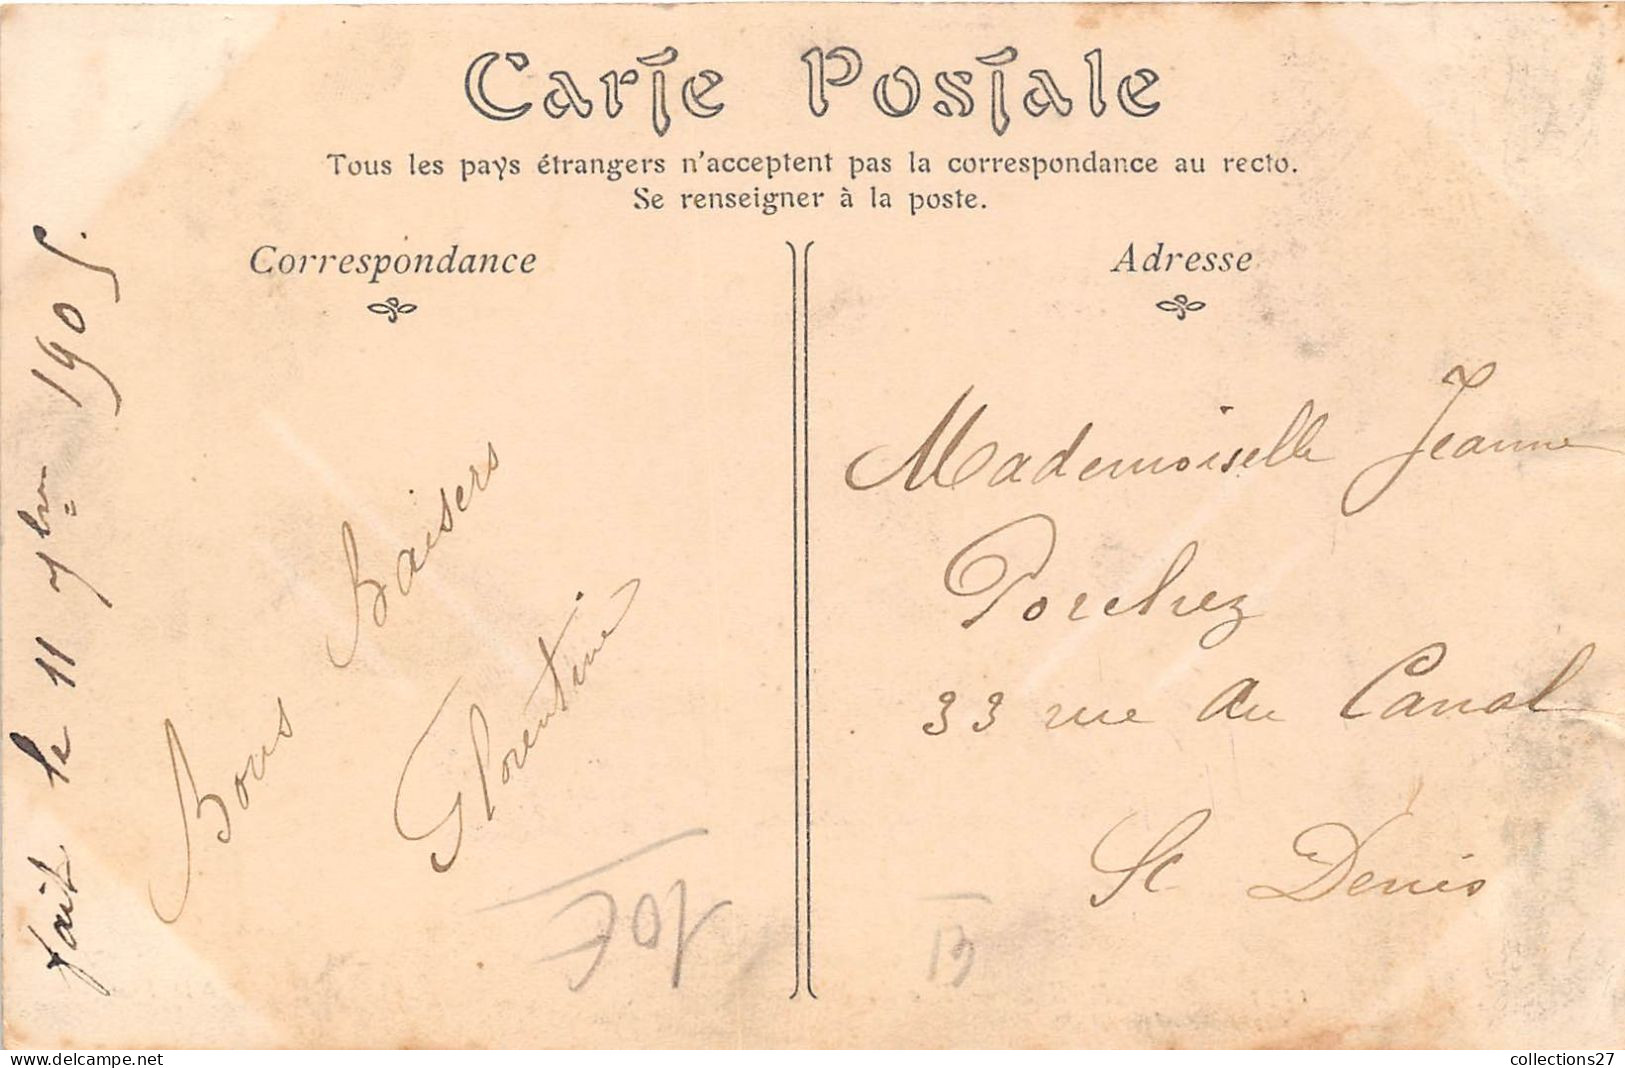 Carte Postale
Tous les pays étrangers n'acceptent pas la correspondance au recto.
Se renseigner à la poste.
Correspondance
Adresse
fait le 11 7bre 1905.
Bons Baisers
Florentine
Mademoiselle Jeanne
Porchez
33 rue du Canal
St Denis
10€
13
collections27